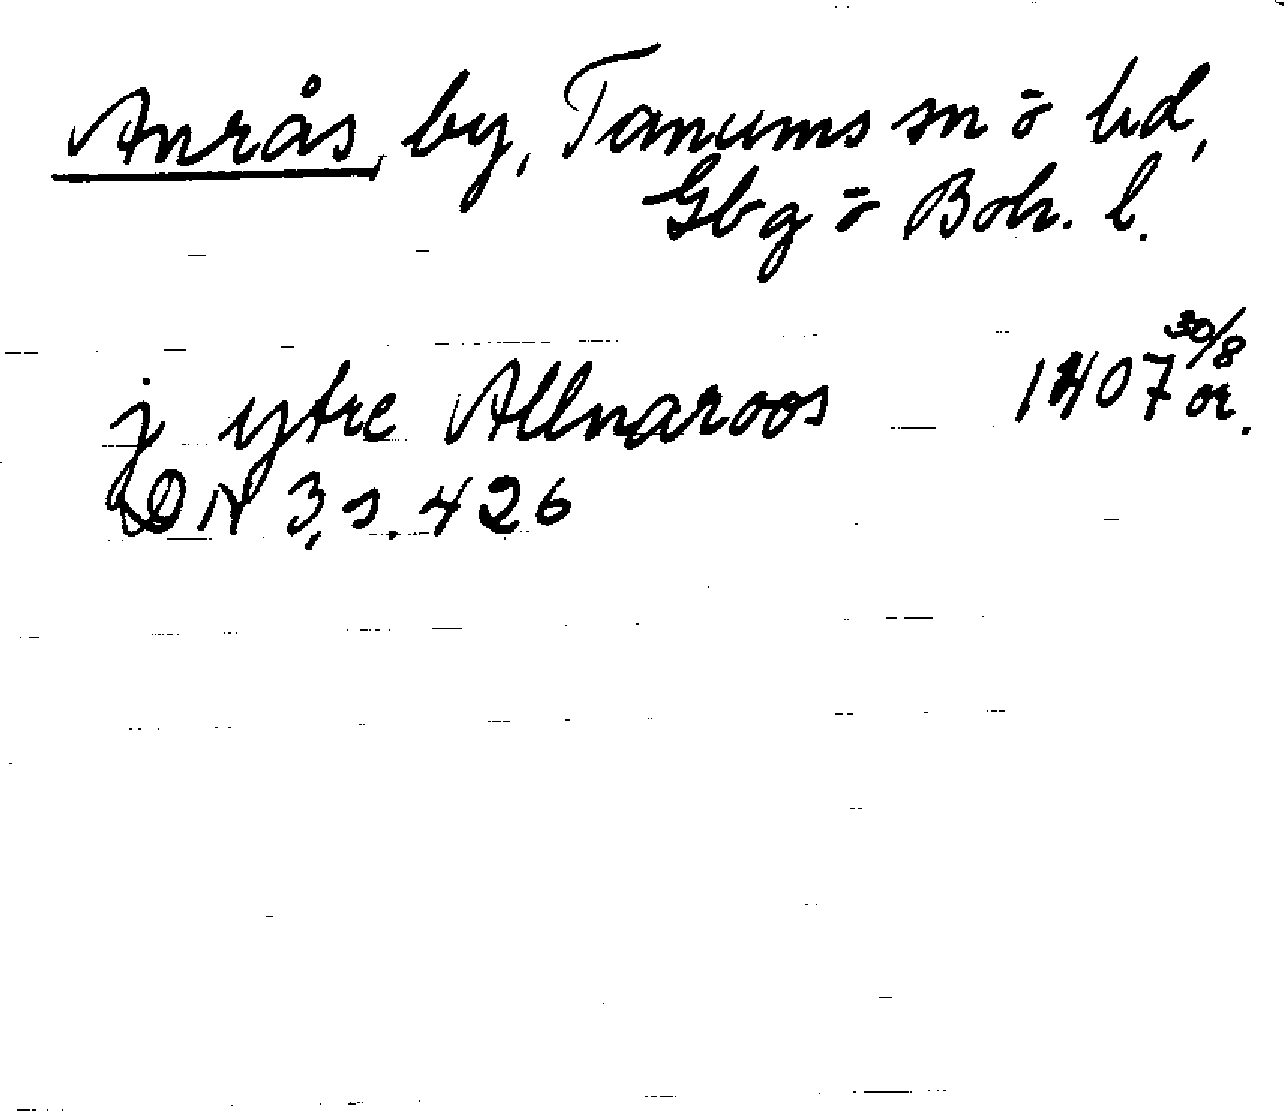 Anrås, by, Tanums sn ō hd,
Gbg ō Boh. l.
j ytre Allnaroos 1407 30/8 or.
DN 3, s. 426